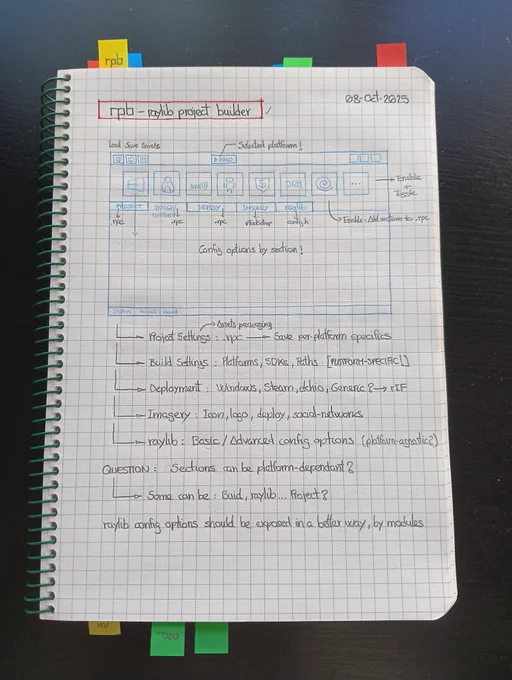 rpb
08-Oct-2025
rpb - raylib project builder
Load Save SaveAs
Selected platform!
Enable
+
Toggle
DRM
PROJECT
DEPLOY
IMAGERY
raylib
.rpc
.rpc
.rpc
config.h
Enable: Add section to .rpc
Config options by section!
Assets packaging
Project Settings: .rpc → Save per-platform specifics
Build Settings: Platforms, SDKs, Paths [PLATFORM-SPECIFIC!]
Deployment: Windows, Steam, itchio, Generic? → rIF
Imagery: Icon, logo, deploy, social-networks
raylib: Basic/Advanced config options (platform-agnostic?)
QUESTION: Sections can be platform-dependant?
Some can be: Buid, raylib... Project?
raylib config options should be exposed in a better way, by modules